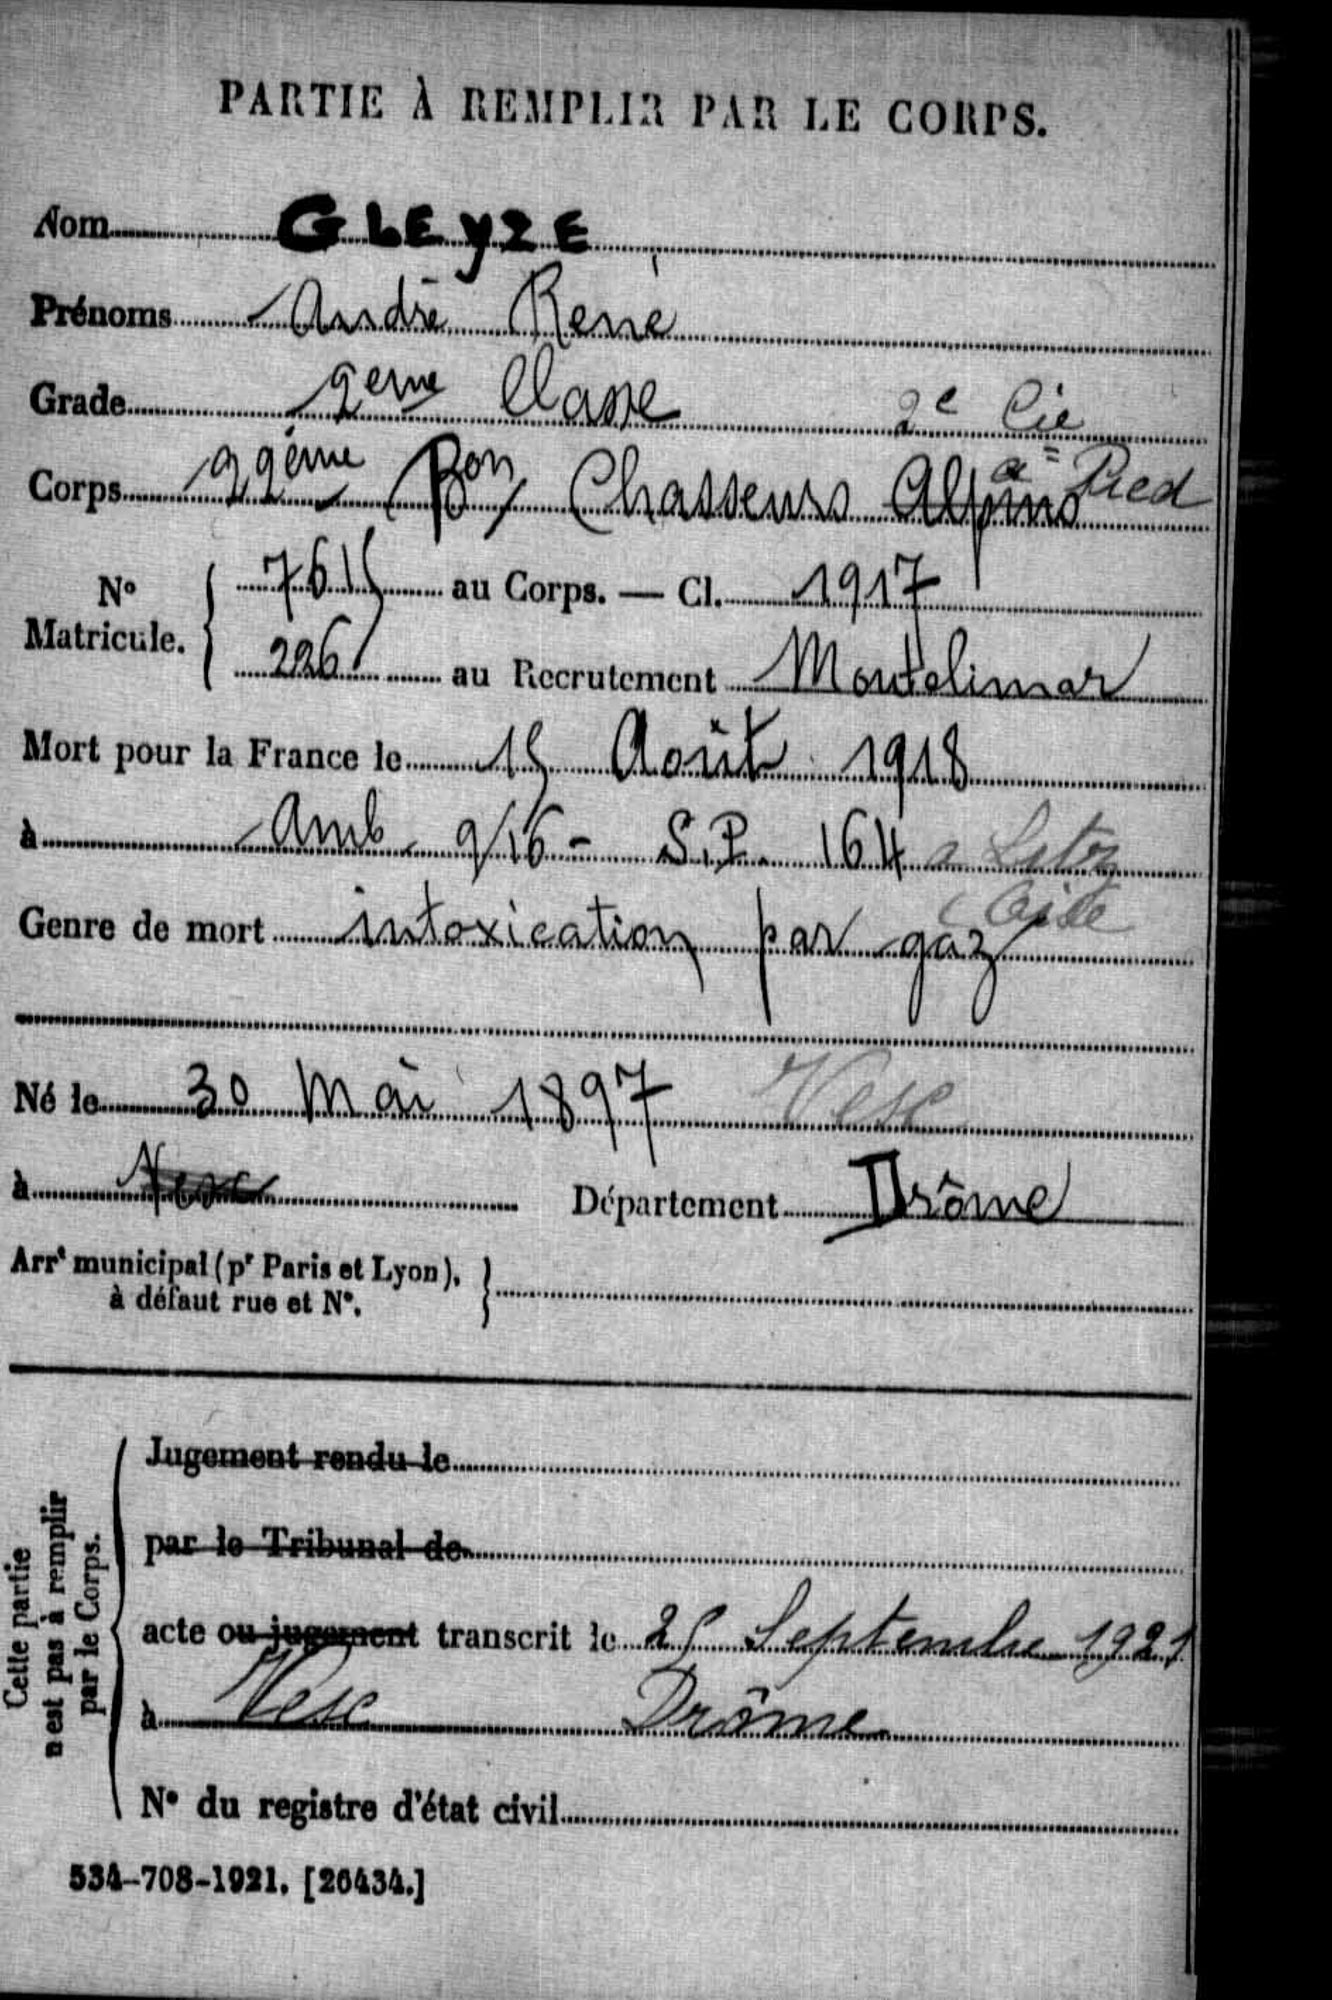 PARTIE À REMPLIR PAR LE CORPS.
Nom GLEYZE
Prénoms André René
Grade 2eme Classe 2e Cie
à Pied
Corps 22ème Bon Chasseurs Alpins
No Matricule. 7615 au Corps. — Cl. 1917
226 au Recrutement Montelimar
Mort pour la France le 15 Août 1918
à Amb 9/16 - S.P. 164 a
Genre de mort intoxication par gaz
Né le 30 Mai 1897 Vesc
à Vesc Département Drôme
Arrt municipal (pr Paris et Lyon),
à défaut rue et No.
Cette partie
n'est pas à remplir
par le Corps.
Jugement rendu le
par le Tribunal de
acte ou jugement transcrit le 25 Septembre 1921
à Vesc Drôme
No du registre d'état civil
534-708-1921. [26434.]